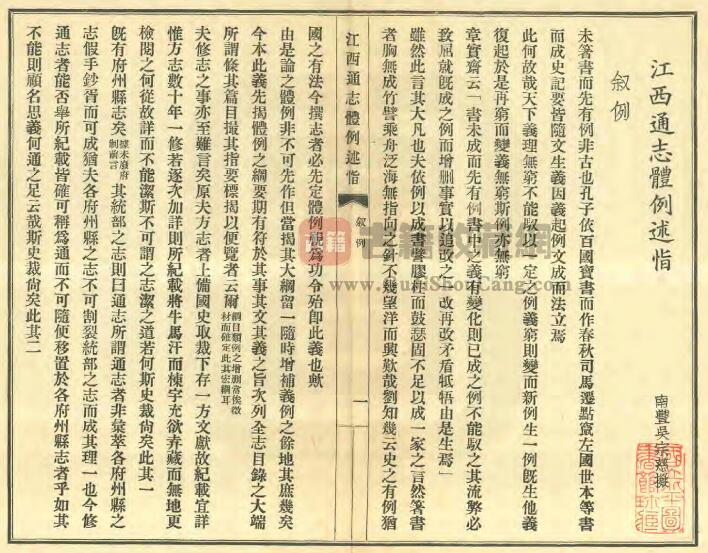 江西通志體例述恉
南豐吳宗慈撰
叙例
未箸書而先有例非古也孔子依百國寶書而作春秋司馬遷點竄左國世本等書
而成史記要皆隨文生義因義起例文成而法立焉
此何故哉天下義理無窮不能馭以一定之例義窮則變而新例生一例既生他義
復起於是再窮而變義無窮斯例亦無窮
章實齋云「書未成而先有例書中之義有變化則已成之例不能馭之其流弊必
致屈就既成之例而增删事實以追改之一改再改矛盾牴牾由是生焉」
雖然此言其大凡也夫依例以成書譬膠柱而鼓瑟固不足以成一家之言然箸書
者胸無成竹譬乘舟泛海無指向之針不幾望洋而興歎哉劉知幾云史之有例猶
江西通志體例述恉
叙例
一
國之有法今撰志者必先定體例視為功令殆即此義也歟
由是論之體例非不可先作但當揭其大綱留一隨時增補義例之餘地其庶幾矣
今本此義先揭體例之綱要期有符於其事其文其義之旨次列全志目錄之大端
所謂條其篇目撮其指要標揭以便覽者云爾 綱目類例之增删當俟徵材而確定此其宏綱耳
夫修志之事亦至難言矣原夫方志者上備國史取裁下存一方文獻故紀載宜詳
惟方志數十年一修若逐次加詳則所紀載將牛馬汗而棟宇充欲弆藏而無地更
檢閱之何從故詳而不能潔斯不可謂之志潔之道若何斯史裁尚矣此其一
既有府州縣志矣 據未廢府制前言 其統部之志則曰通志所謂通志者非彙萃各府州縣之
志假手鈔胥而可成猶夫各府州縣之志不可割裂統部之志而成其理一也今修
通志者能否舉所紀載皆確可稱為通而不可隨便移置於各府州縣志者乎如其
不能則顧名思義何通之足云哉斯史裁尚矣此其二
古籍
古籍收藏網
www.GuJiShouCang.com